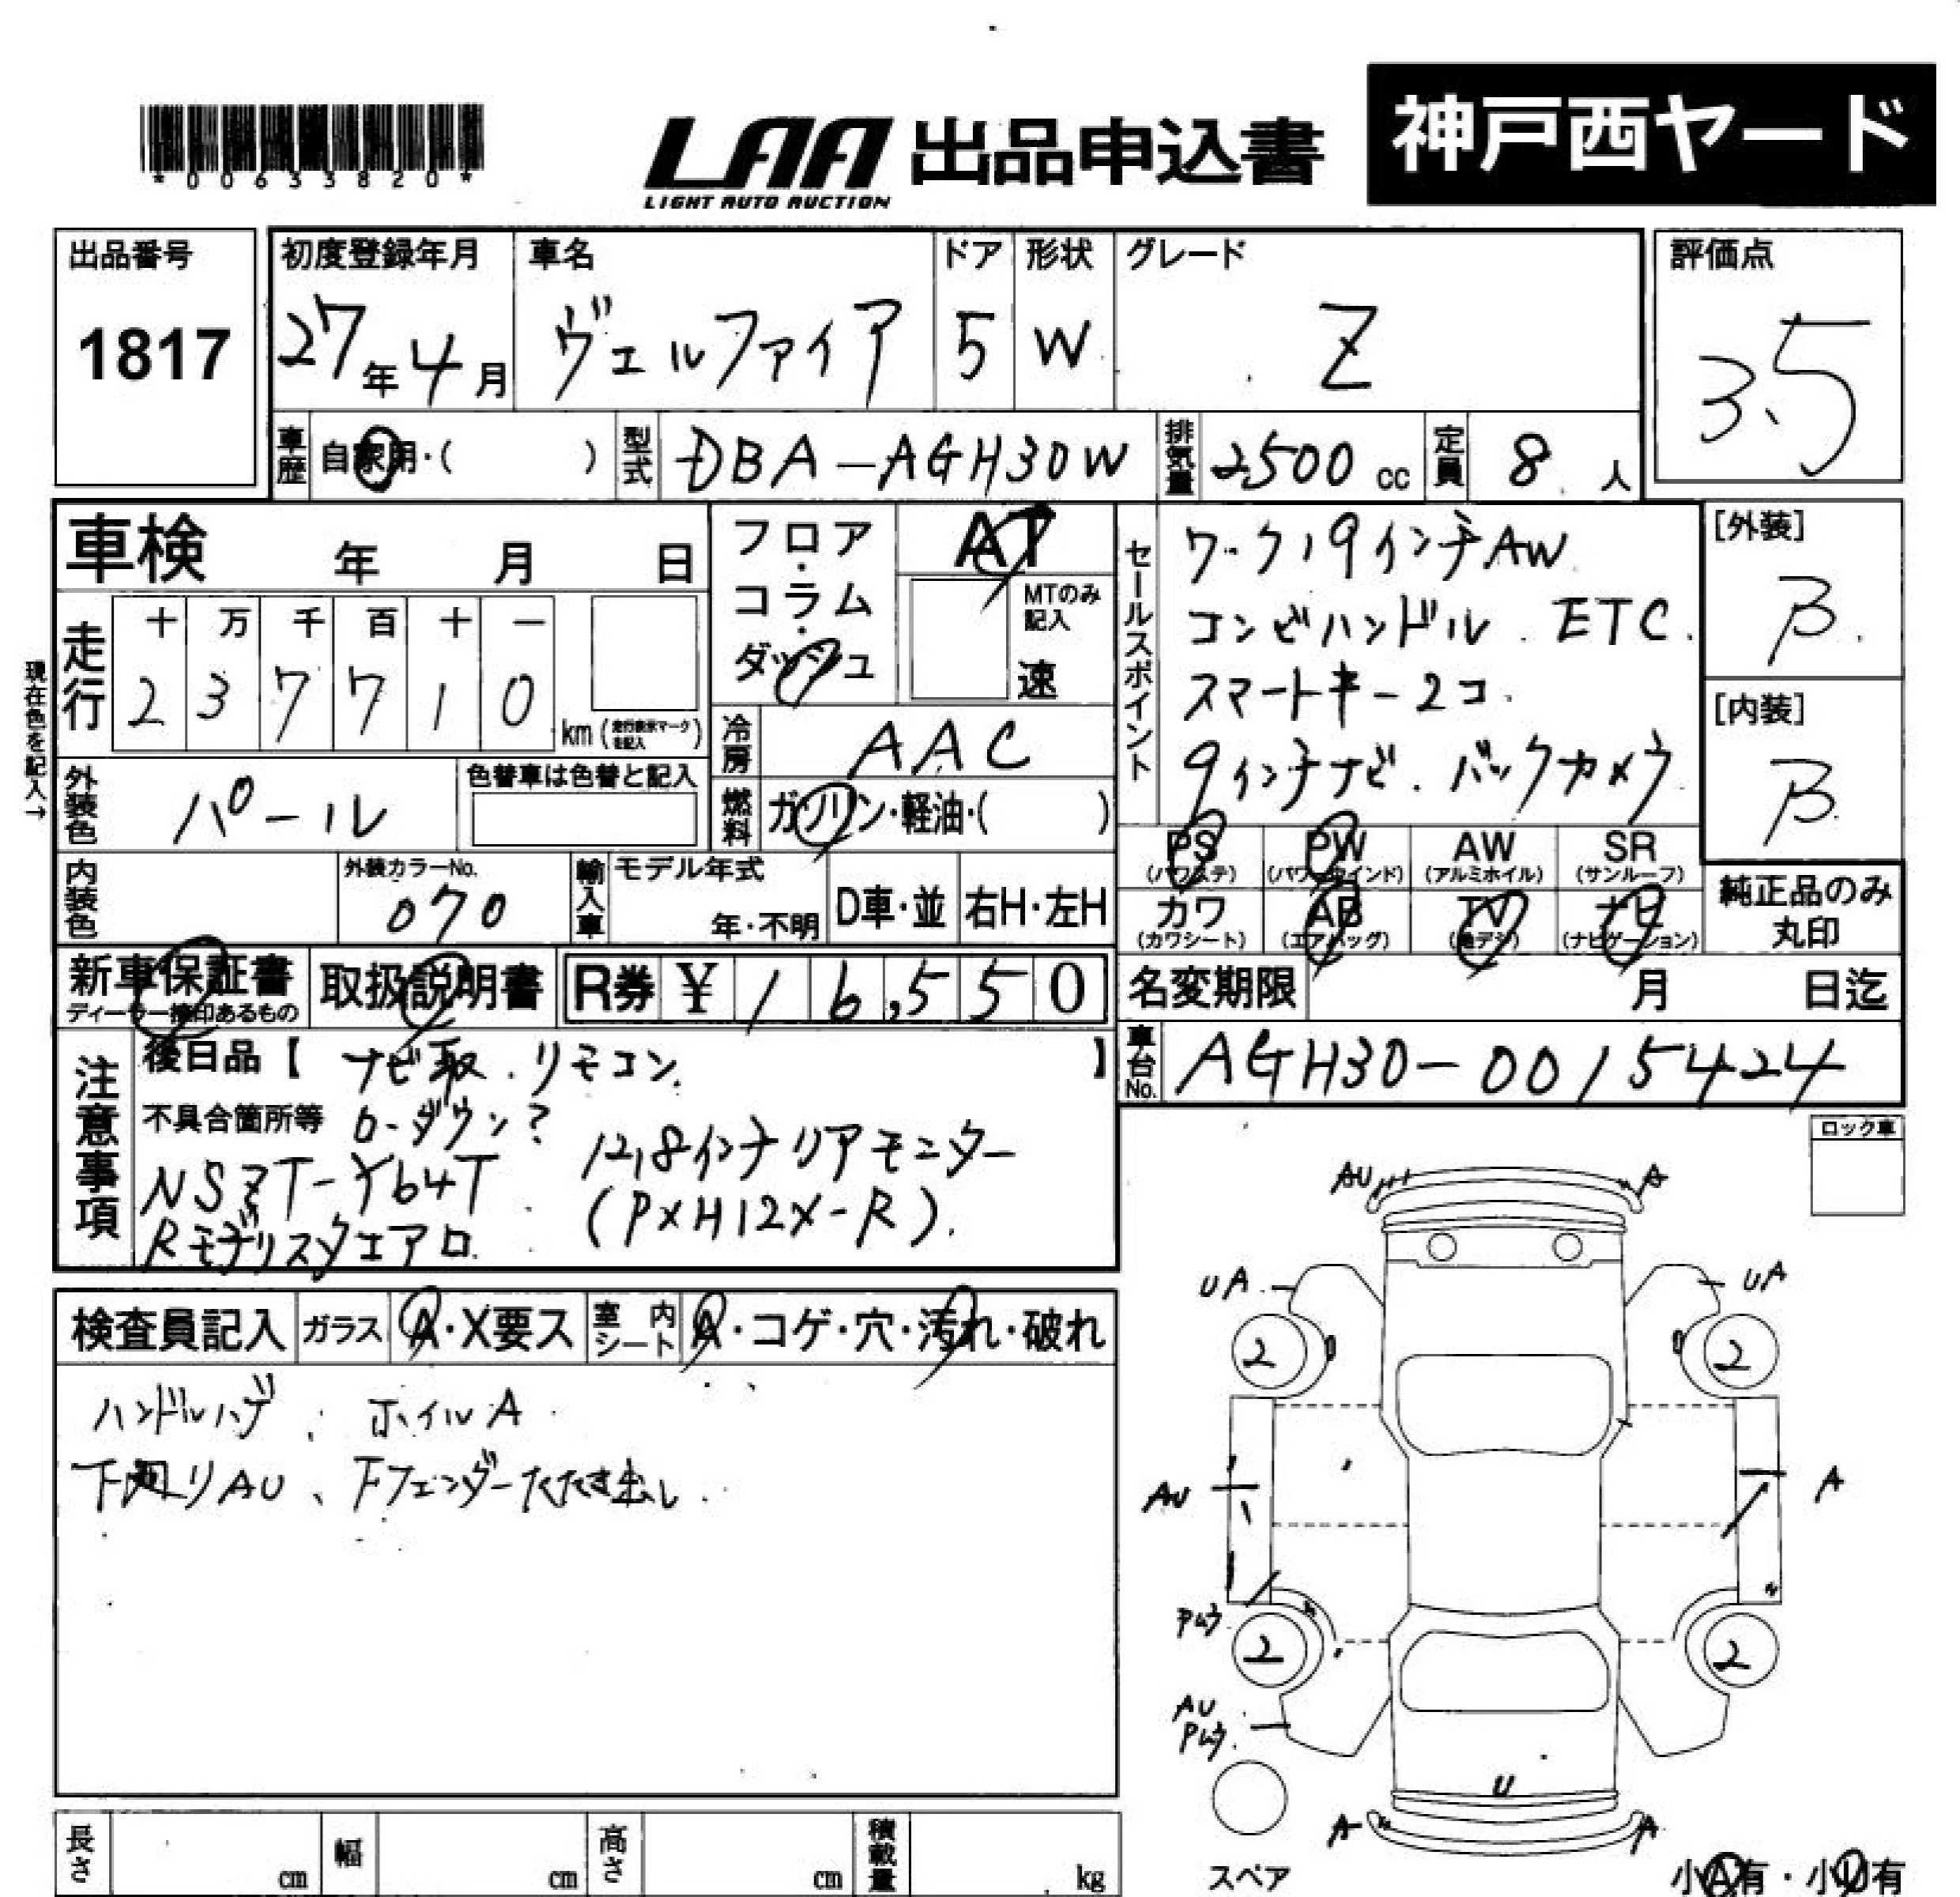 *00633820*
LAA 出品申込書 神戸西ヤード
LIGHT AUTO AUCTION
出品番号
1817
初度登録年月 車名 ドア 形状 グレード
27年4月 ヴェルファイア 5 W Z
評価点
3.5
車歴 自家用・( ) 型式 DBA-AGH30W 排気量 2500cc 定員 8人
車検 年 月 日
フロア・コラム・ダッシュ
AT
MTのみ記入
速
セールスポイント
ワーク19インチAW
コンビハンドル. ETC.
スマートキー2コ.
9インチナビ. バックカメラ
[外装]
B.
[内装]
B.
現在色を記入→
走行 十 万 千 百 十 一
2 3 7 7 1 0
km(走行表示マークを記入)
冷房 AAC
外装色 パール 色替車は色替と記入
燃料 ガソリン・軽油・( )
PS(パワステ) PW(パワーウインド) AW(アルミホイル) SR(サンルーフ)
カワ(カワシート) AB(エアバッグ) TV(地デジ) ナビ(ナビゲーション)
純正品のみ丸印
内装色 外装カラーNo. 070
輸入車 モデル年式 年・不明 D車・並 右H・左H
新車保証書 ディーラー捺印あるもの
取扱説明書 R券 ¥ 16,550
名変期限 月 日迄
車台No. AGH30-0015424
注意事項
後日品【 ナビ取. リモコン. 】
不具合箇所等 ローダウン?
NSZT-Y64T 12.8インチリアモニター
(PXH12X-R).
Rモデリスタエアロ
ロック車
検査員記入 ガラス A・X要ス 室内シート A・コゲ・穴・汚れ・破れ
ハンドルハゲ. ホイルA
下廻りAU、Fフェンダーたたき出し.
AU A
UA UA
2 2
AU A
Pムラ
2 2
AU
Pムラ.
U
A A
スペア
小A有・小U有
長さ cm 幅 cm 高さ cm 積載量 kg